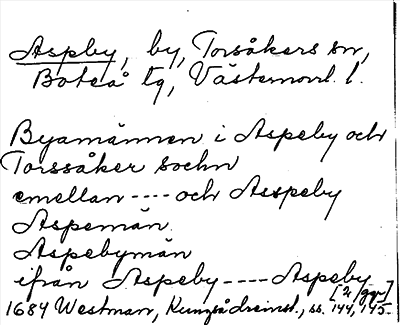 Aspby, by, Torsåkers sn,
Boteå tg, Västernorrl. l.
Byamännen i Aspeby och
Torssåker Sochn
emellan ---- och Asspeby
Aspemän
Aspebymän
ifrån Aspeby ---- Aspeby
[2 ggr]
1684 Westman, Kungsådreinst., ss. 144, 145.